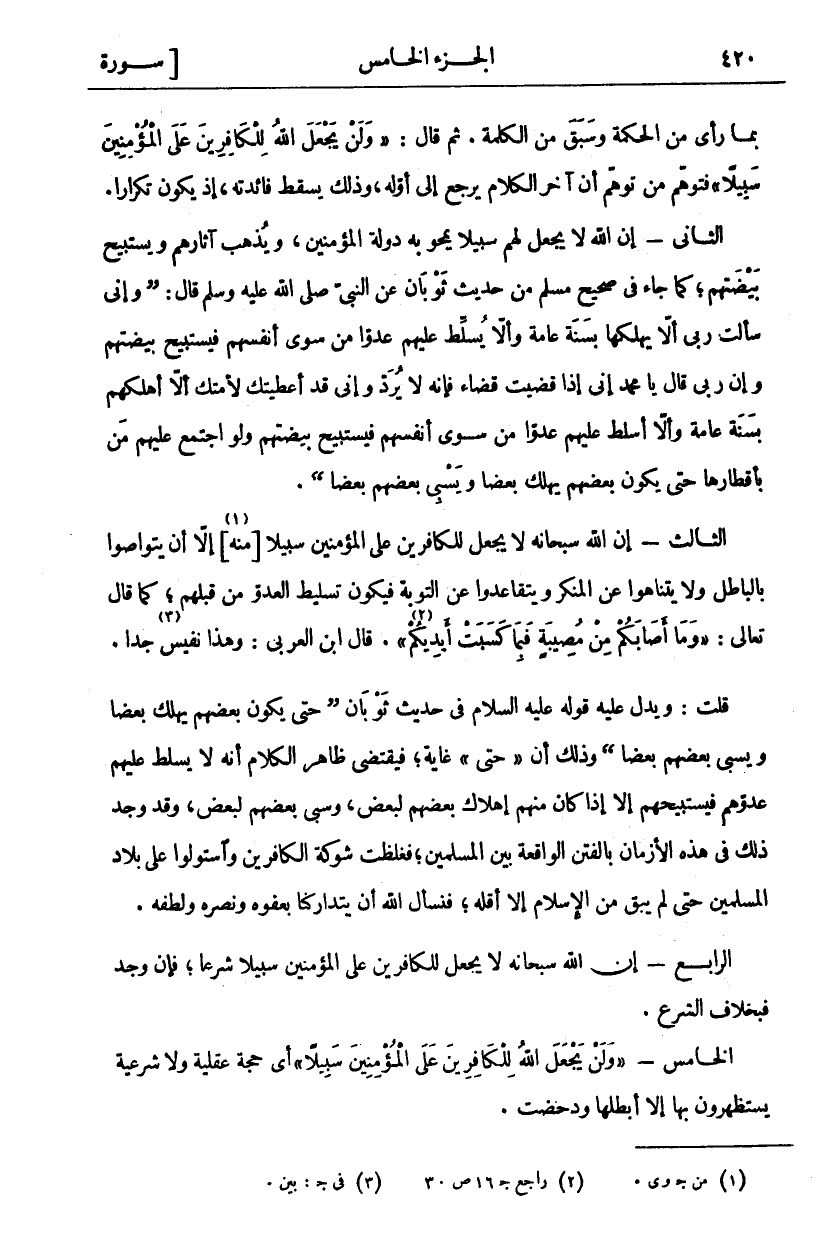 ٤٢٠ الجزء الخامس [ سورة
بما رأى من الحكمة وسَبَقَ من الكلمة . ثم قال : « وَلَنْ يَجْعَلَ اللهُ لِلْكَافِرِينَ عَلَى الْمُؤْمِنِينَ
سَبِيلًا» فتوهّم من توهّم أن آخر الكلام يرجع إلى أوّله ، وذلك يسقط فائدته ، إذ يكون تكرارا .
الثانى – إن الله لا يجعل لهم سبيلا يمحو به دولة المؤمنين ، ويُذهب آثارهم ويستبيح
بَيْضَتهم ؛ كما جاء فى صحيح مسلم من حديث ثَوْبَان عن النبىّ صلى الله عليه وسلم قال : ” وإنى
سألت ربى ألّا يهلكها بسَنَة عامة وألّا يُسلّط عليهم عدوّا من سوى أنفسهم فيستبيح بيضتهم
وإن ربى قال يا محمد إنى إذا قضيت قضاء فإنه لا يُرَدّ وإنى قد أعطيتك لأمتك ألّا أهلكهم
بسَنَة عامة وألّا أسلط عليهم عدوّا من سوى أنفسهم فيستبيح بيضتهم ولو اجتمع عليهم مَن
بأقطارها حتى يكون بعضهم يهلك بعضا ويَسْبِى بعضهم بعضا “ .
الثالث – إن الله سبحانه لا يجعل للكافرين على المؤمنين سبيلا [منه](١) إلّا أن يتواصوا
بالباطل ولا يتناهوا عن المنكر ويتقاعدوا عن التوبة فيكون تسليط العدوّ من قبلهم ؛ كما قال
تعالى : «وَمَا أَصَابَكُمْ مِنْ مُصِيبَةٍ فَبِمَا كَسَبَتْ أَيْدِيكُمْ»(٢) . قال ابن العربى : وهذا نفيس(٣) جدا .
قلت : ويدل عليه قوله عليه السلام فى حديث ثَوْبَان ” حتى يكون بعضهم يهلك بعضا
ويسبى بعضهم بعضا “ وذلك أن « حتى » غاية ؛ فيقتضى ظاهر الكلام أنه لا يسلط عليهم
عدوّهم فيستبيحهم إلا إذا كان منهم إهلاك بعضهم لبعض ، وسبى بعضهم لبعض ، وقد وجد
ذلك فى هذه الأزمان بالفتن الواقعة بين المسلمين ؛ فغلظت شوكة الكافرين وٱستولوا على بلاد
المسلمين حتى لم يبق من الإسلام إلا أقله ؛ فنسأل الله أن يتداركنا بعفوه ونصره ولطفه .
الرابع – إن الله سبحانه لا يجعل للكافرين على المؤمنين سبيلا شرعا ؛ فإن وجد
فبخلاف الشرع .
الخامس – «وَلَنْ يَجْعَلَ اللهُ لِلْكَافِرِينَ عَلَى الْمُؤْمِنِينَ سَبِيلًا» أى حجة عقلية ولا شرعية
يستظهرون بها إلا أبطلها ودحضت .
(١) من جـ وى . (٢) راجع جـ ١٦ ص ٣٠ (٣) فى جـ : بين .